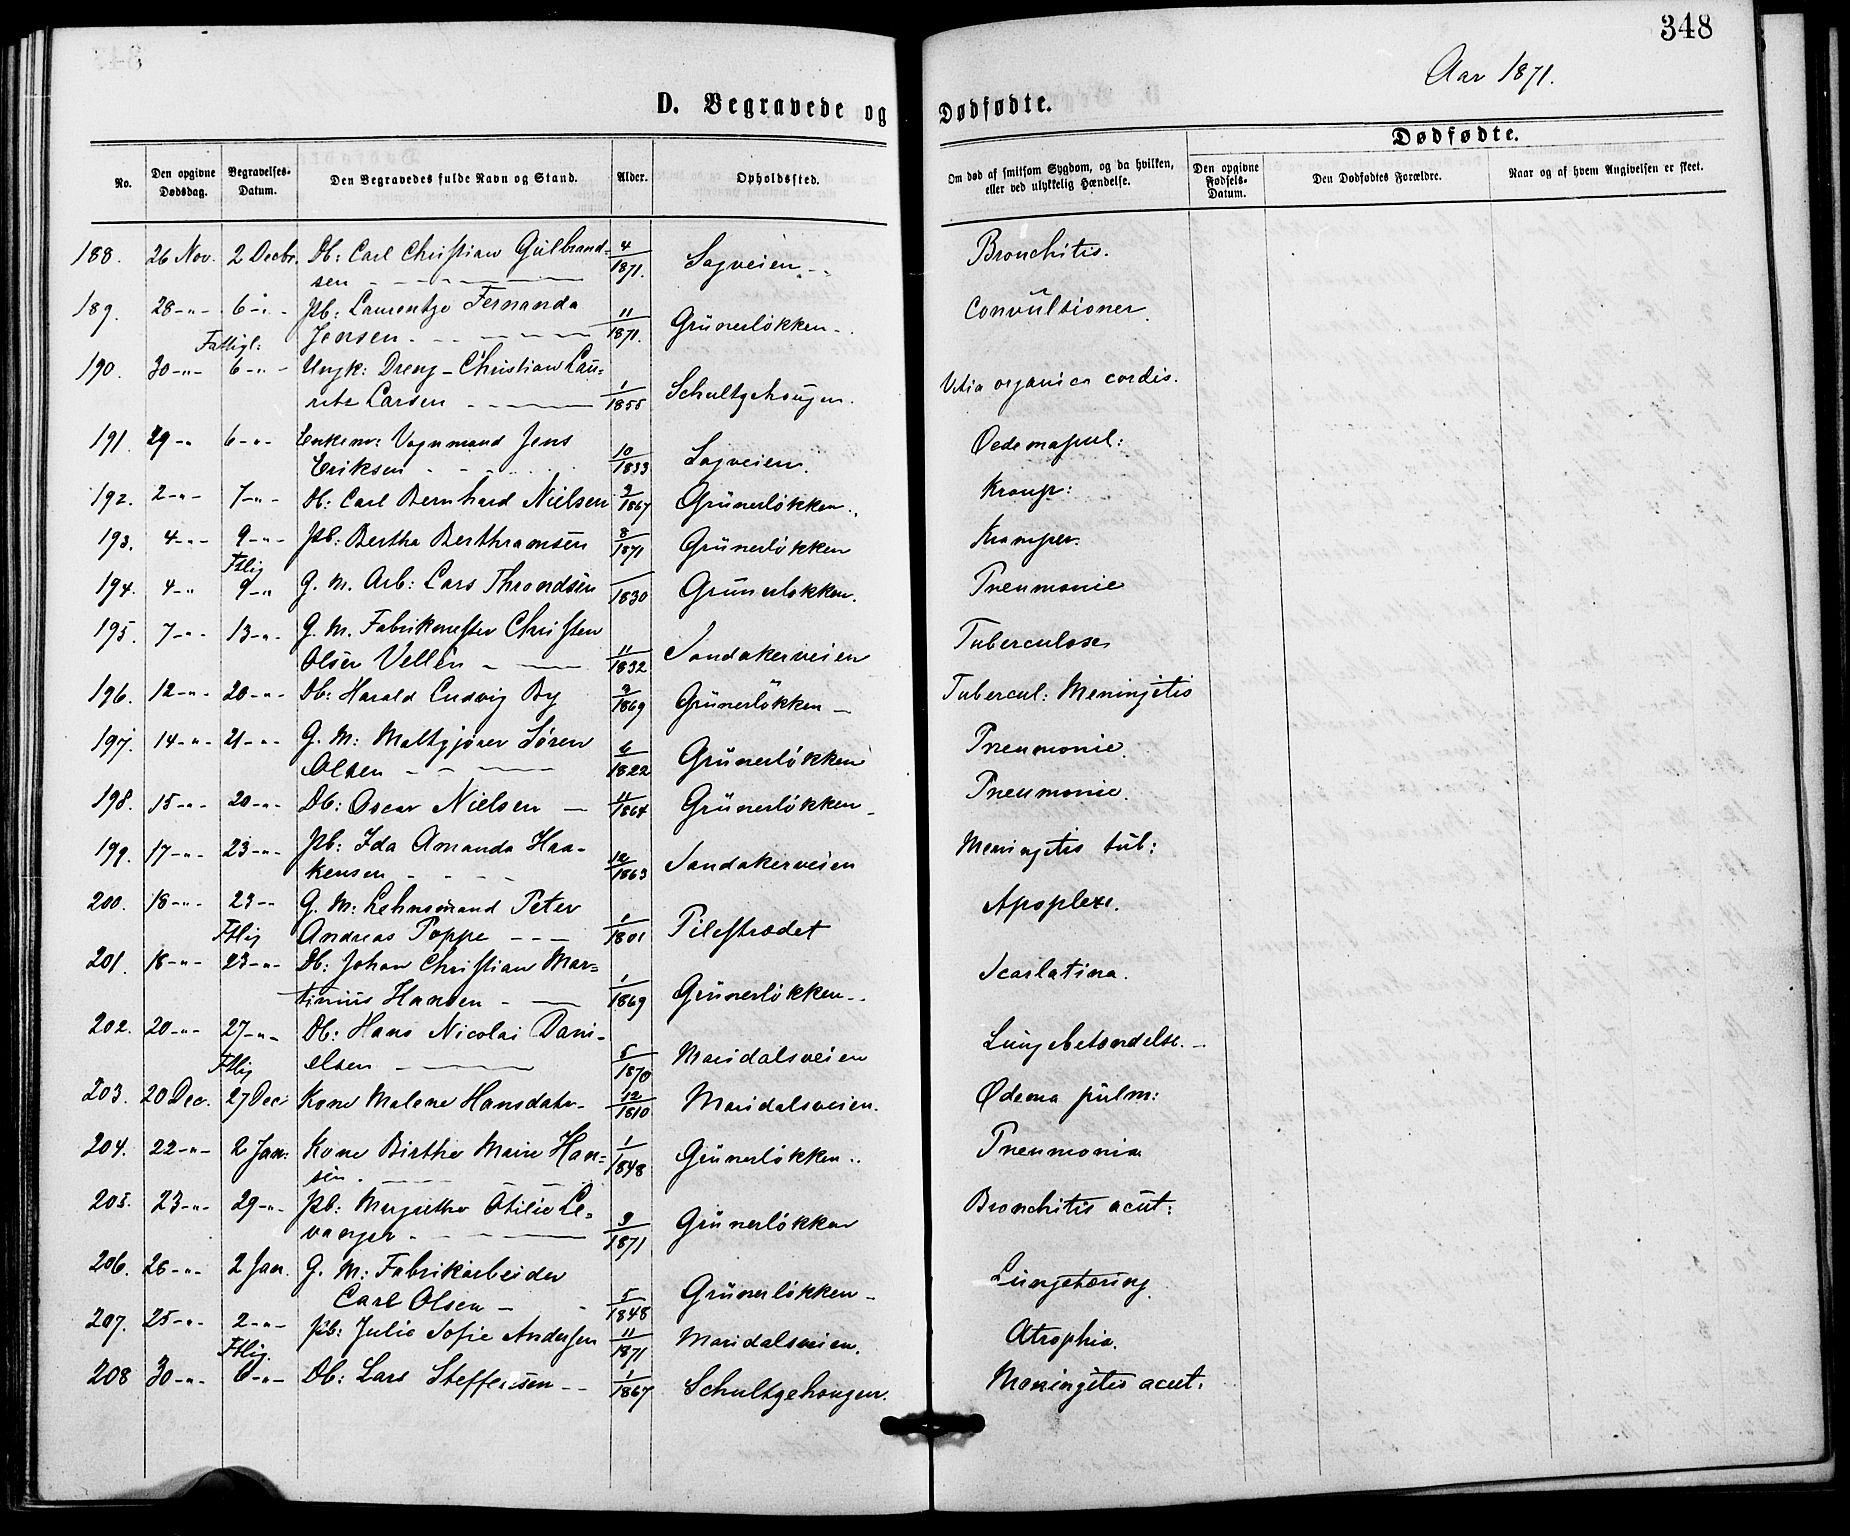 348
Aar 1871.
D. Begravede og Dødfødte.
Dødfødte.
No. Den opgivne Dødsdag. Begravelses-Datum. Den Begravedes fulde Navn og Stand. Alder. Opholdssted. Om død af smitsom Sygdom, og da hvilken, eller ved ulykkelig Hændelse. Den opgivne Fødsels-Datum. Den Dødfødtes Forældre. Naar og af hvem Angivelsen er skeet.
188. 26 Nov. 2 Decbr. Db: Carl Christian Gulbrand= 4/1871. Sagveien Bronchitis.
sen
189. 28-"- 6-"- Pb: Laurentze Fernanda 11/1871. Grünerløkken Convulsioner.
Jensen
Fattigl:
190. 30-"- 6-"- Ungk: Dreng Christian Lau= 1/1855 Schultzehougen. Vitia organica cordis.
ritz Larsen
191. 29-" 6-"- Enkem: Vognmand Jens 10/1833 Sagveien. Oedema pul:
Eriksen
192. 2-"- 7-"- Db: Carl Bernhard Nielsen 9/1867 Grünerløkken. Kroup:
193. 4-"- 9-"- Pb: Bertha Berthramsen 8/1871 Grünerløkken Kramper.
Fttig
194. 4-" 9-" G. M. Arb: Lars Throndsen 1830 Grünerløkken. Pneumonie
195. 7-"- 13-"- G. M. Fabrikmester Christen
Olsen Vellen 11/1832 Sandakerveien Tuberculoses
196. 12-"- 20-"- Db: Harald Ludvig By 9/1869 Grünerløkken Tubercul: Meningitis
197. 14-"- 21-"- G. M: Maltgjører Søren
Olsen 6/1822 Grünerløkken Pneumonie.
198. 15-"- 20-"- Db: Oscar Nielsen 11/1864 Grünerløkken Pneumonie.
199. 17-"- 23-"- Pb: Ida Amanda Haa-
kensen 12/1863 Sandakerveien Meningitis tub:
200. 18-"- 23-- G. M: Lehnsmand Peter
Andreas Poppe 1/1801 Pilestrædet Apoplexi.
Fttig
201. 18-"- 23-"- Db: Johan Christian Mar=
tinius Hansen 1/1869 Grünerløkken Scarlatina.
202. 20-"- 27-"- Db: Hans Nicolai Dani-
elsen 5/1870 Maridalsveien Lungebetændelse.
Fttig
203. 20 Dec. 27 Dec. Kone Malene Hansdatr. 12/1810 Maridalsveien. Ødema pulm:
204. 22-"- 2 Jan: Kone Birthe Marie Han= 1/1848 Grünerløkken Pneumonia
sen.
205. 23-"- 29-"- Pb: Margrethe Otilie Le=
vanger 9/1871 Grünerløkken Bronchitis acut:
206. 26-"- 2 Jan. G. M: Fabrikarbeider
Carl Olsen 5/1848 Grünerløkken Lungetæring
207. 25-"- 2-"- Pb: Julie Sofie Andersen 11/1871 Maridalsveien. Atrophia.
Fttig.
208 30-"- 6-"- Db: Lars Steffensen 1/1867 Schultzehougen. Meningitis acut: